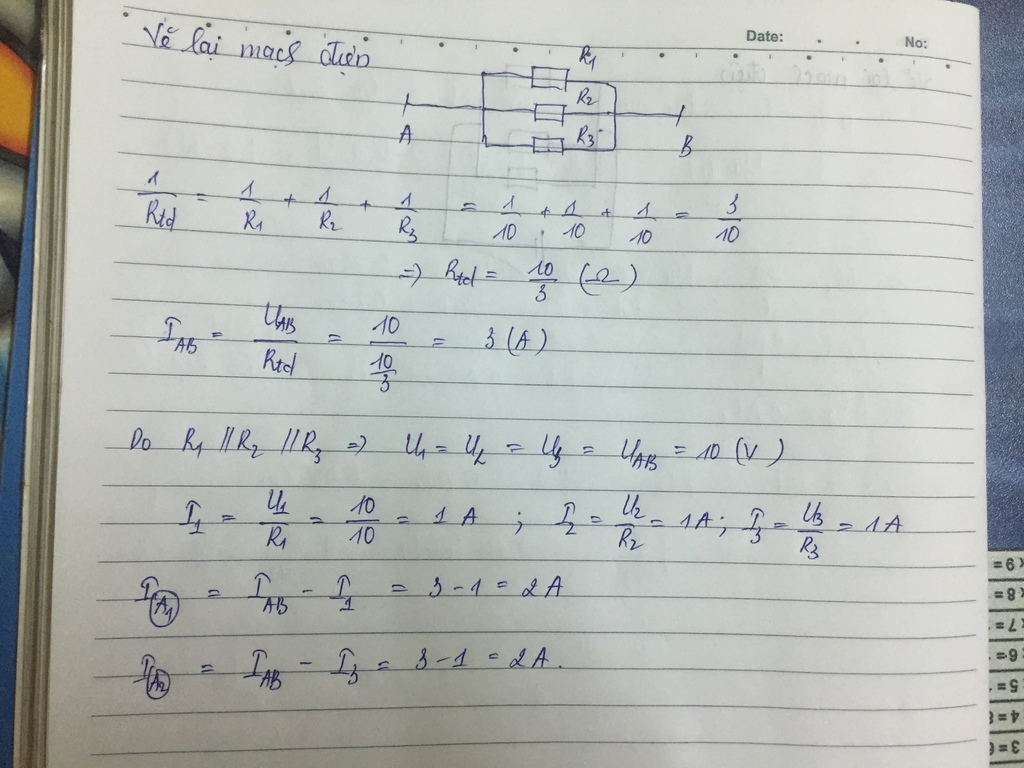 Date:
No:
Vẽ lại mạch điện
A
R1
R2
R3
B
1/Rtđ = 1/R1 + 1/R2 + 1/R3 = 1/10 + 1/10 + 1/10 = 3/10
=) Rtđ = 10/3 (Ω)
I_AB = U_AB/Rtđ = 10/(10/3) = 3(A)
Do R1 // R2 // R3 => U1 = U2 = U3 = U_AB = 10 (V)
I1 = U1/R1 = 10/10 = 1 A ; I2 = U2/R2 = 1A ; I3 = U3/R3 = 1A
I_A1 = I_AB - I1 = 3 - 1 = 2A
I_A2 = I_AB - I3 = 3 - 1 = 2A.
3 = 6
4 = 8
5 =
6 =
7 =
8 =
9 =